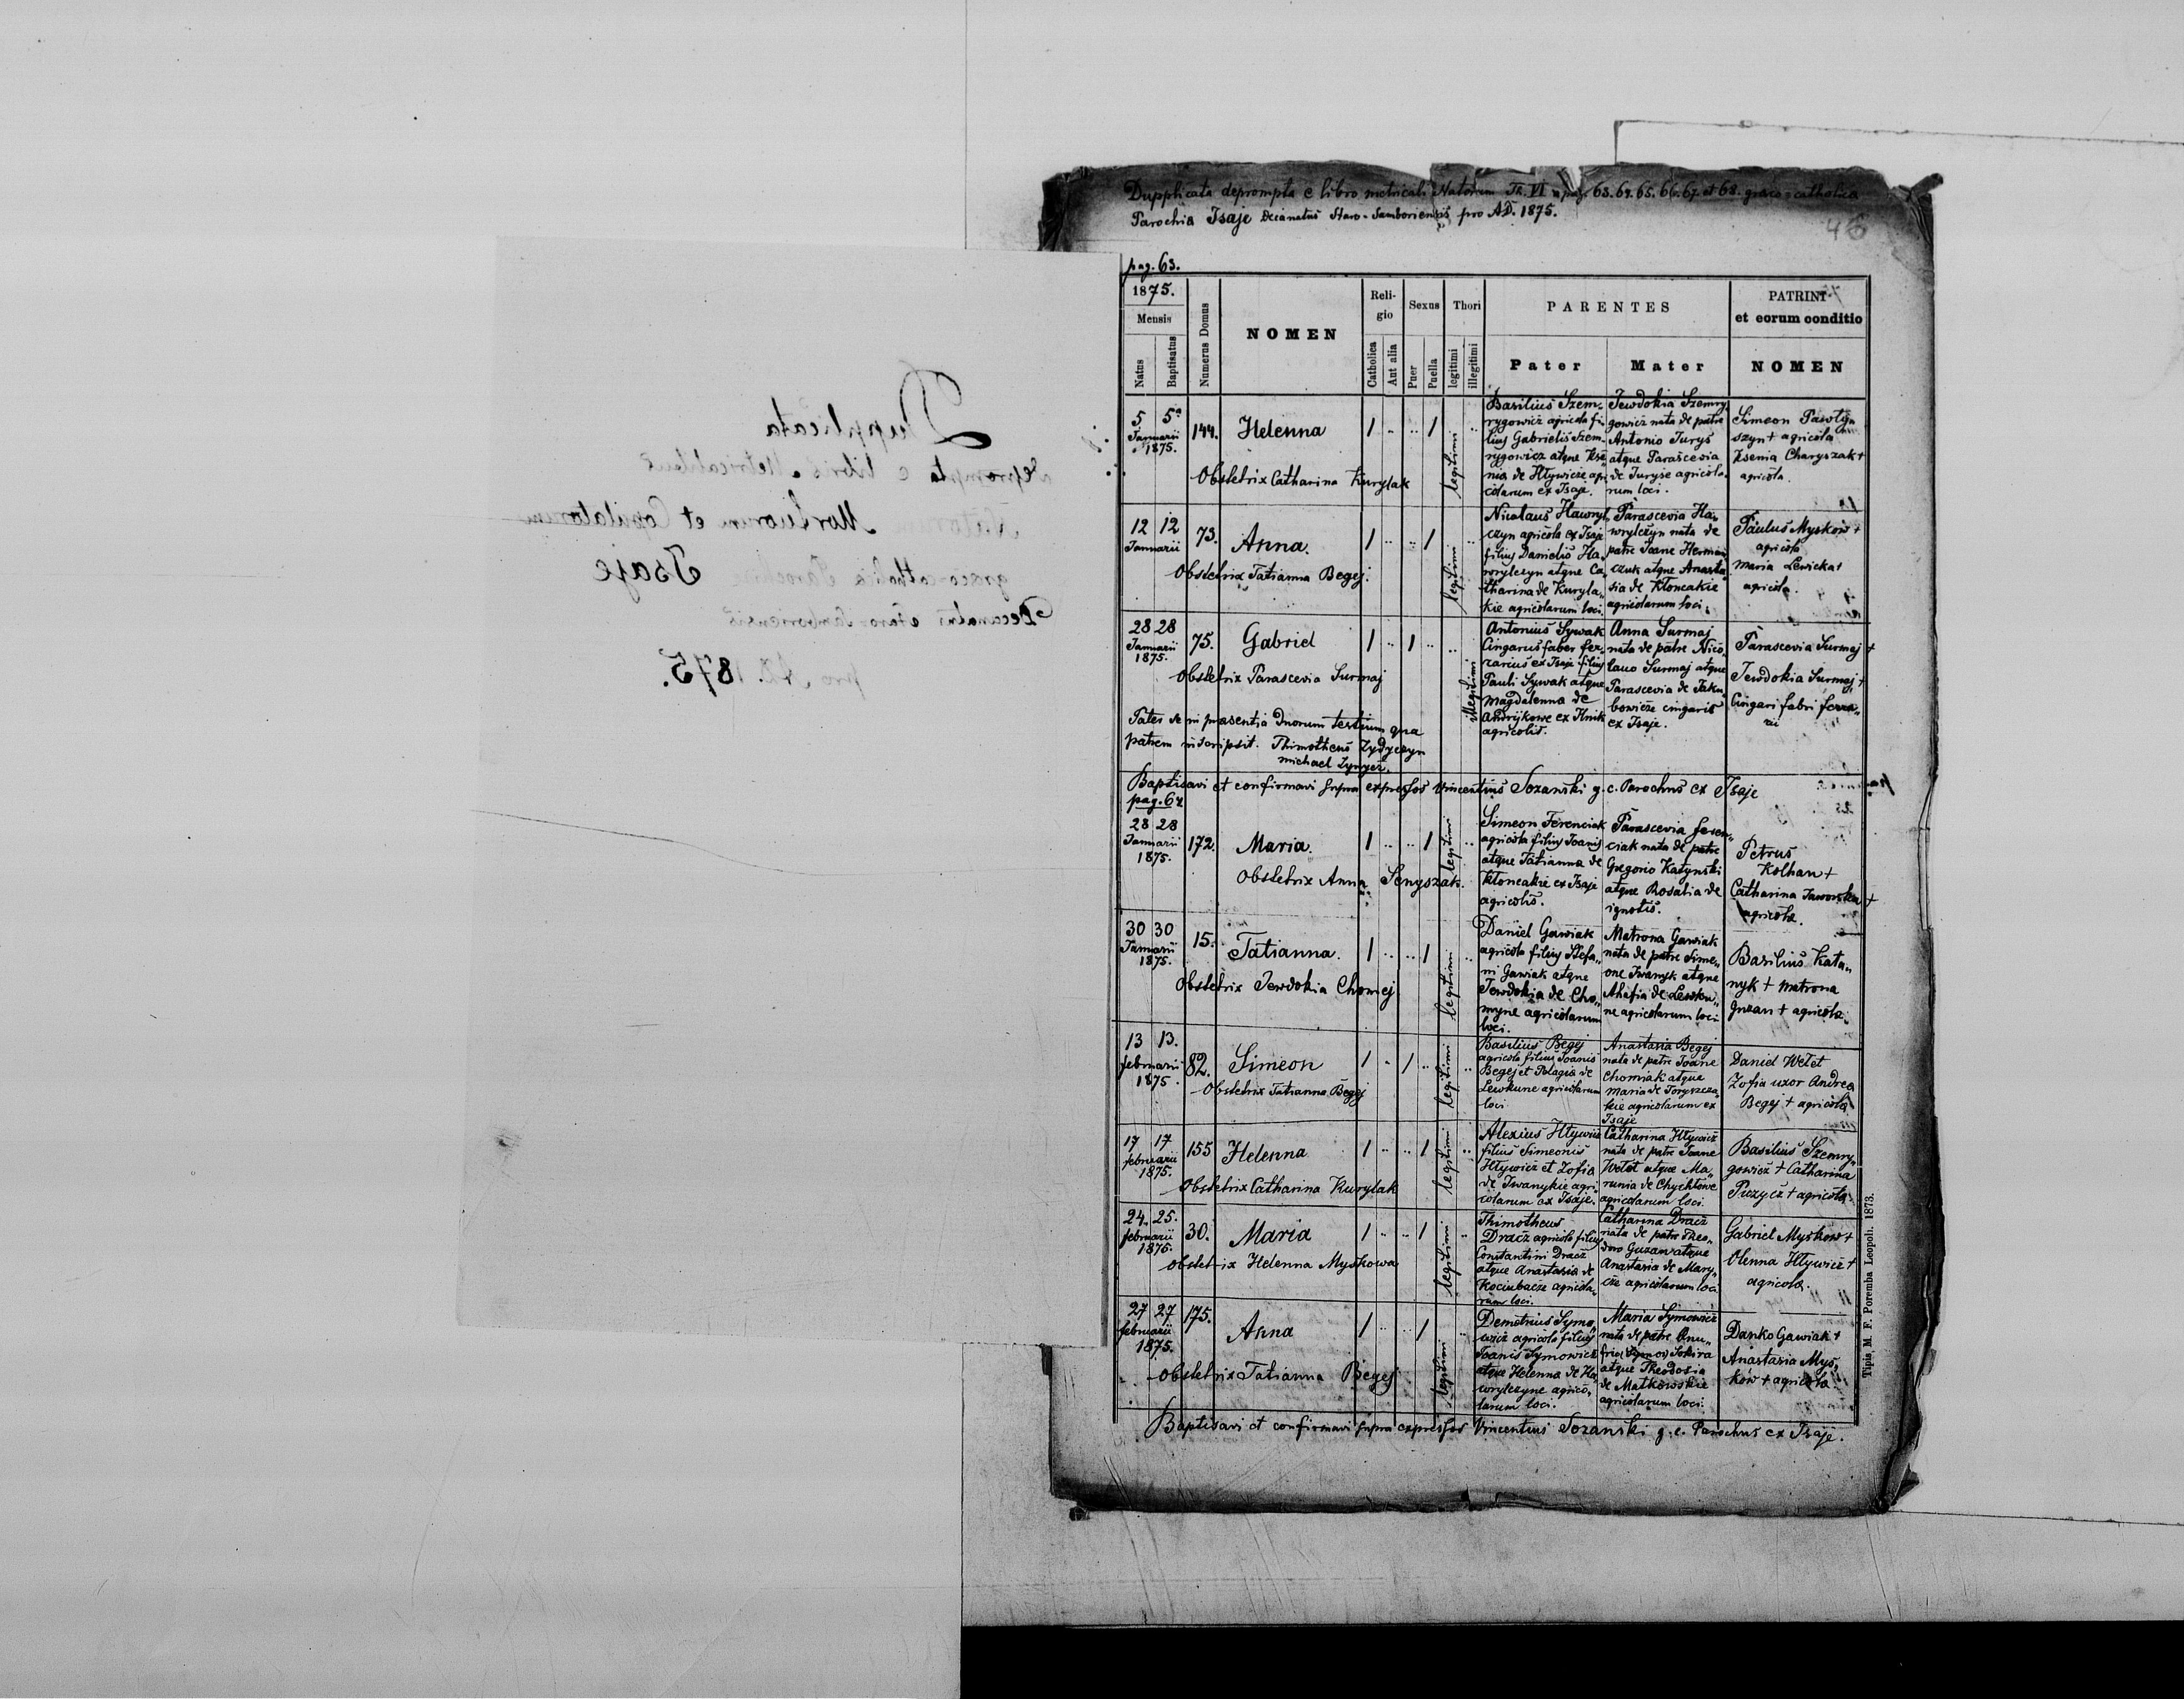 Dupplicata deprompta e libro metricali Natorum Th. VI a pag. 63. 64. 65. 66. 67. et 68. graeco-catholica
Parochia Isaje Decanatus Staro-Samboriensis pro A.D. 1875.
46
pag. 63.
1875.
Mensis
Natus
Baptisatus
Numerus Domus
NOMEN
Reli-
gio
Catholica
Aut alia
Sexus
Puer
Puella
Thori
legitimi
illegitimi
PARENTES
Pater
Mater
PATRINI
et eorum conditio
NOMEN
5 5
Januarii
1875.
144.
Helenna
1 1
legitimi
Obstetrix Catharina Kurylak
Basilius Szem-
rygowicz agricola fi-
lius Gabrielis Szem-
rygowicz atque Kse-
nia de Hływicze agri-
colarum ex Isaje.
Jewdokia Szemry-
gowicz nata de patre
Antonio Jurys
atque Parascevia
de Juryse agricola-
rum loci.
Simeon Pawły-
szyn + agricola
Ksenia Charyszak +
agricola.
12 12
Januarii
73.
Anna.
1 1
legitimi
Obstetrix Tatianna Begej.
Nicolaus Hawryl-
czyn agricola ex Isaje
filius Danielis Ha-
wrylczyn atque Ca-
tharina de Kuryla-
kie agricolarum loci.
Parascevia Ha-
wrylczyn nata de
patre Joane Herman
czuk atque Anasta-
sia de Kłoncakie
agricolarum loci.
Paulus Myskow +
agricola
Maria Lewicka +
agricola.
28 28
Januarii
1875.
75.
Gabriel
1 1
illegitimi
Obstetrix Parascevia Surmaj
Antonius Sywak
Cingarus faber fer-
rarius ex Isaje filius
Pauli Sywak atque
Magdalenna de
Andrijkowe ex Ilnik
agricolis.
Anna Surmaj
nata de patre Nico-
lauo Surmaj atque
Parascevia de Jaku-
bowicze cingaris
ex Isaje.
Parascevia Surmaj +
Jewdokia Surmaj +
Cingari fabri ferra-
rii
Pater se in praesentia duorum testium qua
patrem inscripsit. Thimotheus Zydyczyn
Michael Zynycz.
Baptisavi et confirmavi supra expressos Vincentius Sozanski g. c. Parochus ex Isaje
pag. 64
28 28
Januarii
1875.
172.
Maria.
1 1
legitimi
Obstetrix Anna Senyszak.
Simeon Ferenciak
agricola filius Joanis
atque Tatianna de
Kłoncakie ex Isaje
agricolis.
Parascevia Feren-
ciak nata de patre
Gregorio Katynski
atque Rosalia de
ignotis.
Petrus
Kolhan +
Catharina Jaworska +
agricola.
30 30
Januarii
1875.
15.
Tatianna.
1 1
legitimi
Obstetrix Jewdokia Chomej
Daniel Gawiak
agricola filius Stefa-
ni Gawiak atque
Jewdokia de Cho-
myne agricolarum
loci.
Matrona Gawiak
nata de patre Sime-
one Iwanyk atque
Ahafia de Lewku-
ne agricolarum loci
Basilius Kata-
nyk + Matrona
Guzan + agricola.
13 13.
februarii
1875.
82.
Simeon
1 1
legitimi
Obstetrix Tatianna Begej
Basilius Begej
agricola filius Joanis
Begej et Pelagia de
Lewkune agricolarum
loci
Anastasia Begej
nata de patre Joane
Chomiak atque
Maria de Toryszcza-
kie agricolarum ex
Isaje
Daniel Wetet
Zofia uxor Andrea
Begej + agricola
17 17
februarii
1875.
155
Helenna
1 1
legitimi
Obstetrix Catharina Kurylak
Alexius Hływicz
filius Simeonis
Hływicz et Zofia
de Iwanykie agri-
colarum ex Isaje.
Catharina Hływicz
nata de patre Joane
Wetet atque Ma-
runia de Chychłowe
agricolarum loci.
Basilius Szemry-
gowicz + Catharina
Puzycz + agricola
24. 25.
februarii
1875.
30.
Maria
1 1
legitimi
Obstetrix Helenna Myskowa
Thimotheus
Dracz agricola filius
Constantini Dracz
atque Anastasia de
Kociubacze agricola-
rum loci.
Catharina Dracz
nata de patre Theo-
doro Guzan atque
Anastasia de Mary-
cze agricolarum loci
Gabriel Myskow +
Olenna Hływicz +
agricola.
27 27
februarii
1875.
175.
Anna
1 1
legitimi
Obstetrix Tatianna Begej
Demetrius Symo-
wicz agricola filius
Joanis Symowicz
atque Helenna de Ha-
wrylczyne agrico-
larum loci.
Maria Symowicz
nata de patre Onu-
frio Sokira
atque Theodosia
de Matkowskie
agricolarum loci.
Danko Gawiak +
Anastasia Mys-
kow + agricola
Baptisavi et confirmavi supra expressos Vincentius Sozanski g. c. Parochus ex Isaje.
Tipis, M. F. Poremba Leopoli. 1873.
Dupplicata
deprompta e libris Metricalibus
Mortuorum et Copulatorum
graeco-catholica Parochiae Isaje
Decanatus Staro-Samboriensis
pro A.D. 1875.